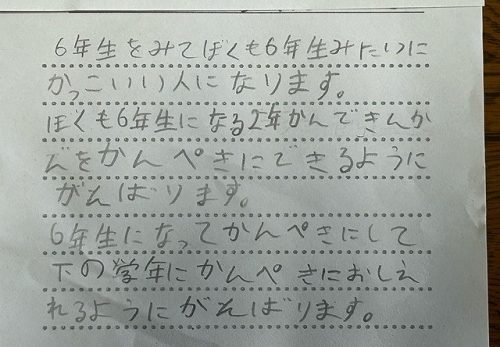 6年生をみてぼくも6年生みたいに
かっこいい人になります。
ぼくも6年生になる2年かんできんか
んをかんぺきにできるように
がんばります。
6年生になってかんぺきにして
下の学年にかんぺきにおしえ
れるようにがんばります。